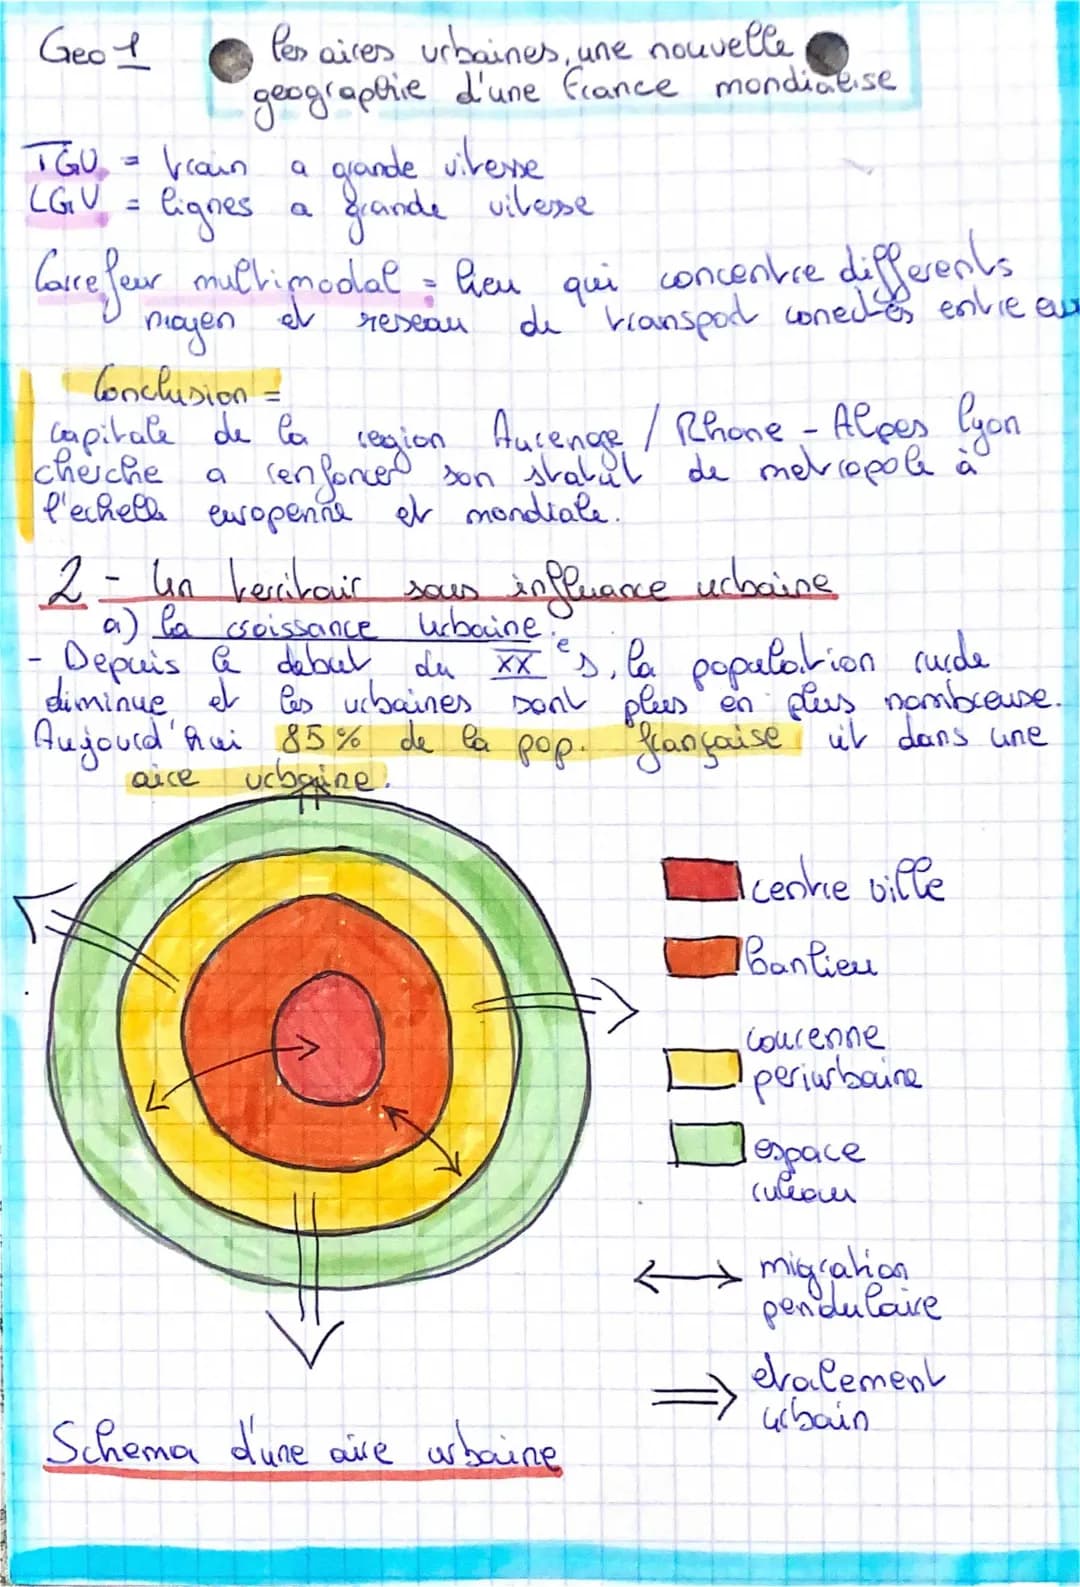 Geo 1
les aires urbaines, une nouvelle
geographie d'une France mondialise
TGV = train a grande vitesse
LGV = lignes a grande vitesse
Carrefeur multimodal = lieu qui concentre differents
moyen et reseau de transpot conectés entre eux
Conclusion =
capitale de la region Auvenge / Rhone - Alpes lyon
cherche a renforcer son statut de metropole à
l'echelle europenne et mondiale.
2 - Un territoir sous influance urbaine
a) la croissance urbaine.
- Depuis le debut du XXe s, la population rurale
diminue et les urbaines sont plus en plus nombreuse.
Aujourd'hui 85% de la pop. française vit dans une
aire urbaine.
centre ville
Banlieu
courenne
periurbaine
espace
ruleaur
migration
pendulaire
etalement
urbain
Schema d'une aire urbaine